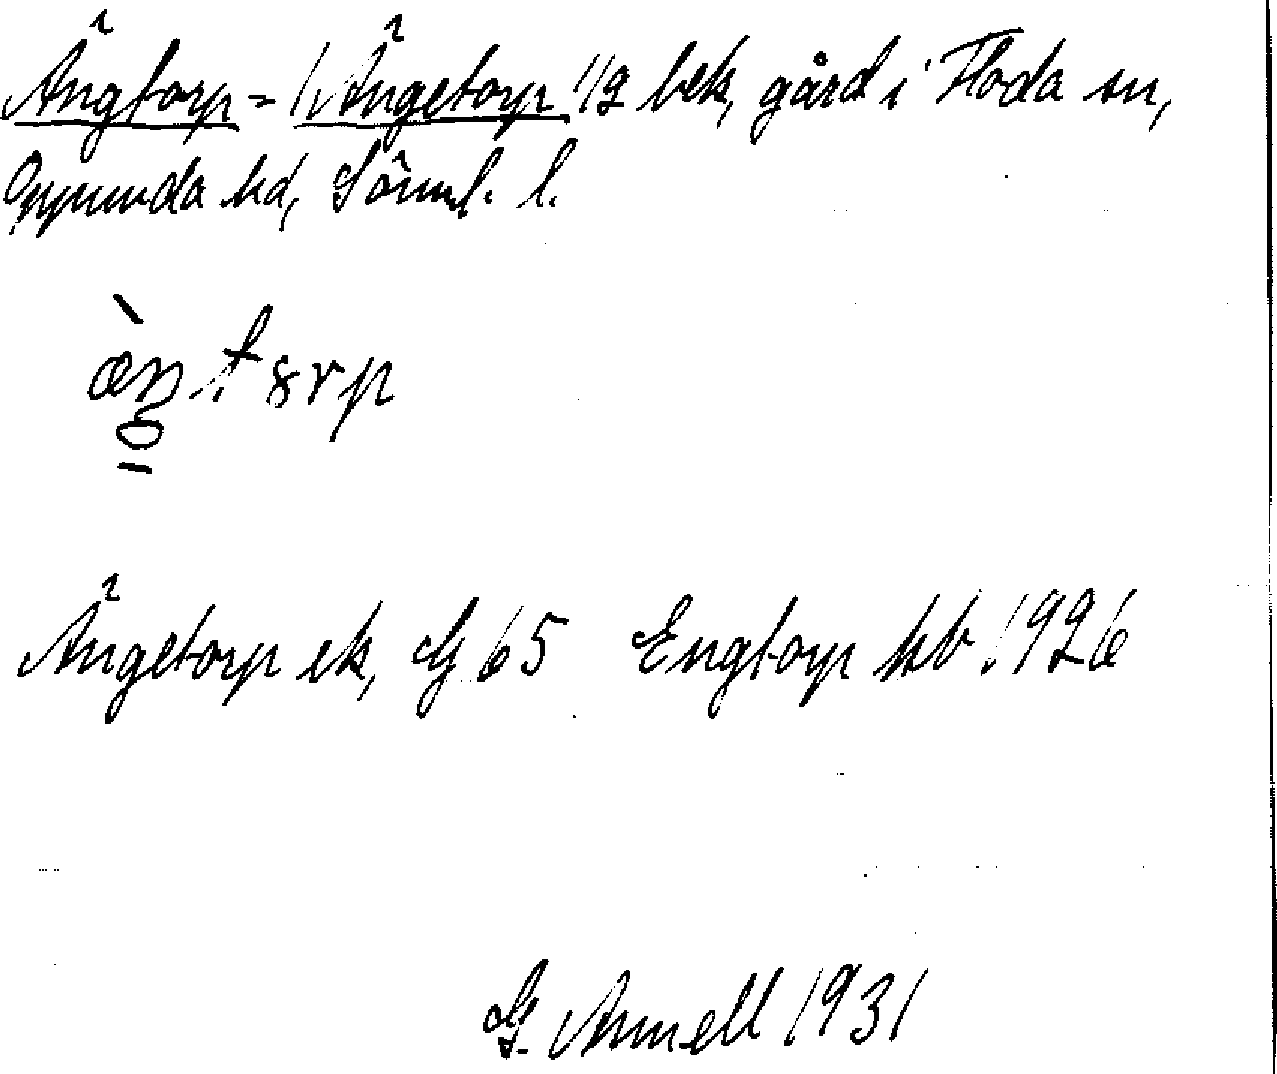 Ängtorp = (Ängetorp 1/2 bek, gård i Floda sn,
Oppunda hd, Sörml. l.
Ängetorp ek, G 65 Engtorp kb 1926
G. Annell 1931